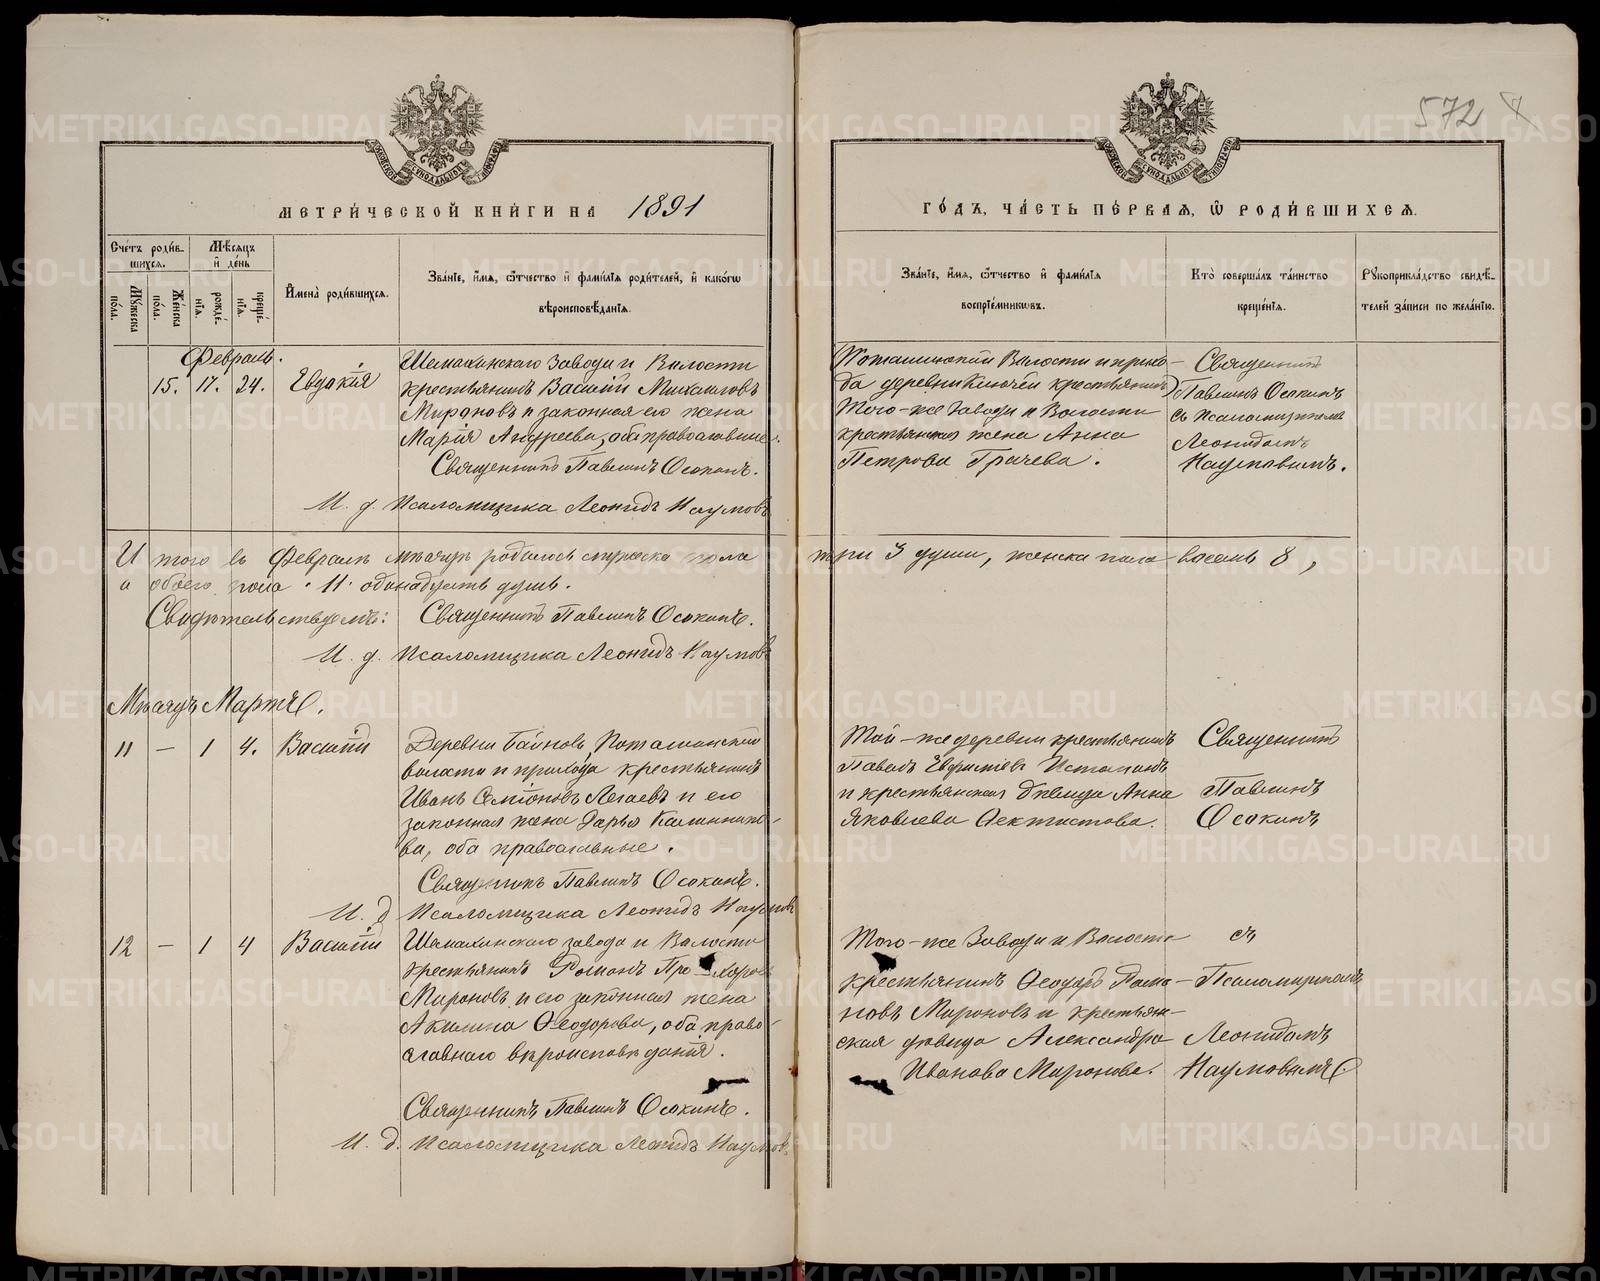 572
МЕТРИ́ЧЕСКОЙ КНИ́ГИ НА 1891
ГО́ДЪ, ЧА́СТЬ ПЕ́РВАЯ, Ѽ РОДИ́ВШИХСЯ.
Сче́тъ роди́в-
шихся.
Мѣ́сяцъ
и҆ де́нь
Му́жеска
по́ла.
Же́нска
по́ла.
рожде́-
нїя.
креще́-
нїя.
И҆мена̀ роди́вшихся.
Зва́нїе, и҆́мя, ѻ҆́тчество и҆ фами́лїя роди́телей, и҆ како́гѡ
вѣроисповѣ́данїя.
Зва́нїе, и҆́мя, ѻ҆́тчество и҆ фами́лїя
воспрїе́мниковъ.
Кто̀ соверша́лъ та́инство
креще́нїя.
Рꙋкоприкла́дство свидѣ́-
телей за́писи по жела́нїю.
Февраль.
15. 17. 24. Евдокія
Шемахинскаго Завода и Волости
крестьянинъ Василій Михаиловъ
Мироновъ и законная его жена
Марія Андреева, оба православные.
Священникъ Павлинъ Осокинъ.
И. д. Псаломщика Леонидъ Наумовъ
Поташинской Волости и прихо-
да деревни Ключей крестьянинъ
Того-же Завода и Волости
крестьянская жена Анна
Петрова Грачева.
Священникъ
Павлинъ Осокинъ
съ Псаломщикомъ
Леонидомъ
Наумовымъ.
И того въ Февралѣ мѣсяцѣ родилось мужеска пола три 3 души, женска пола восемь 8,
а обоего пола 11 одинадцать душъ.
Свидѣтельствуемъ: Священникъ Павлинъ Осокинъ.
И. д. Псаломщика Леонидъ Наумовъ
Мѣсяцъ Мартъ.
11 — 1 4. Василій
Деревни Бѝйновъ, Поташинской
волости и прихода крестьянинъ
Иванъ Семіоновъ Легаевъ и его
законная жена Дарья Калиннико-
ва, оба православные.
Священникъ Павлинъ Осокинъ.
И. д. Псаломщика Леонидъ Наумовъ
Той-же деревни крестьянинъ
Павелъ
и крестьянская дѣвица Анна
Яковлева Ѳектистова.
Священникъ
Павлинъ
Осокинъ
12 — 1 4 Василій
Шемахинскаго завода и Волости
крестьянинъ Романъ Про-хоровъ
Мироновъ и его законная жена
Акилина Ѳеодорова, оба право-
славнаго вѣроисповѣданія.
Священникъ Павлинъ Осокинъ.
И. д. Псаломщика Леонидъ Наумовъ
Того-же Завода и Волости
крестьянинъ Ѳеодоръ Рома-
новъ Мироновъ и крестьян-
ская дѣвица Александра
Иванова Миронова.
съ
Псаломщикомъ
Леонидомъ
Наумовымъ